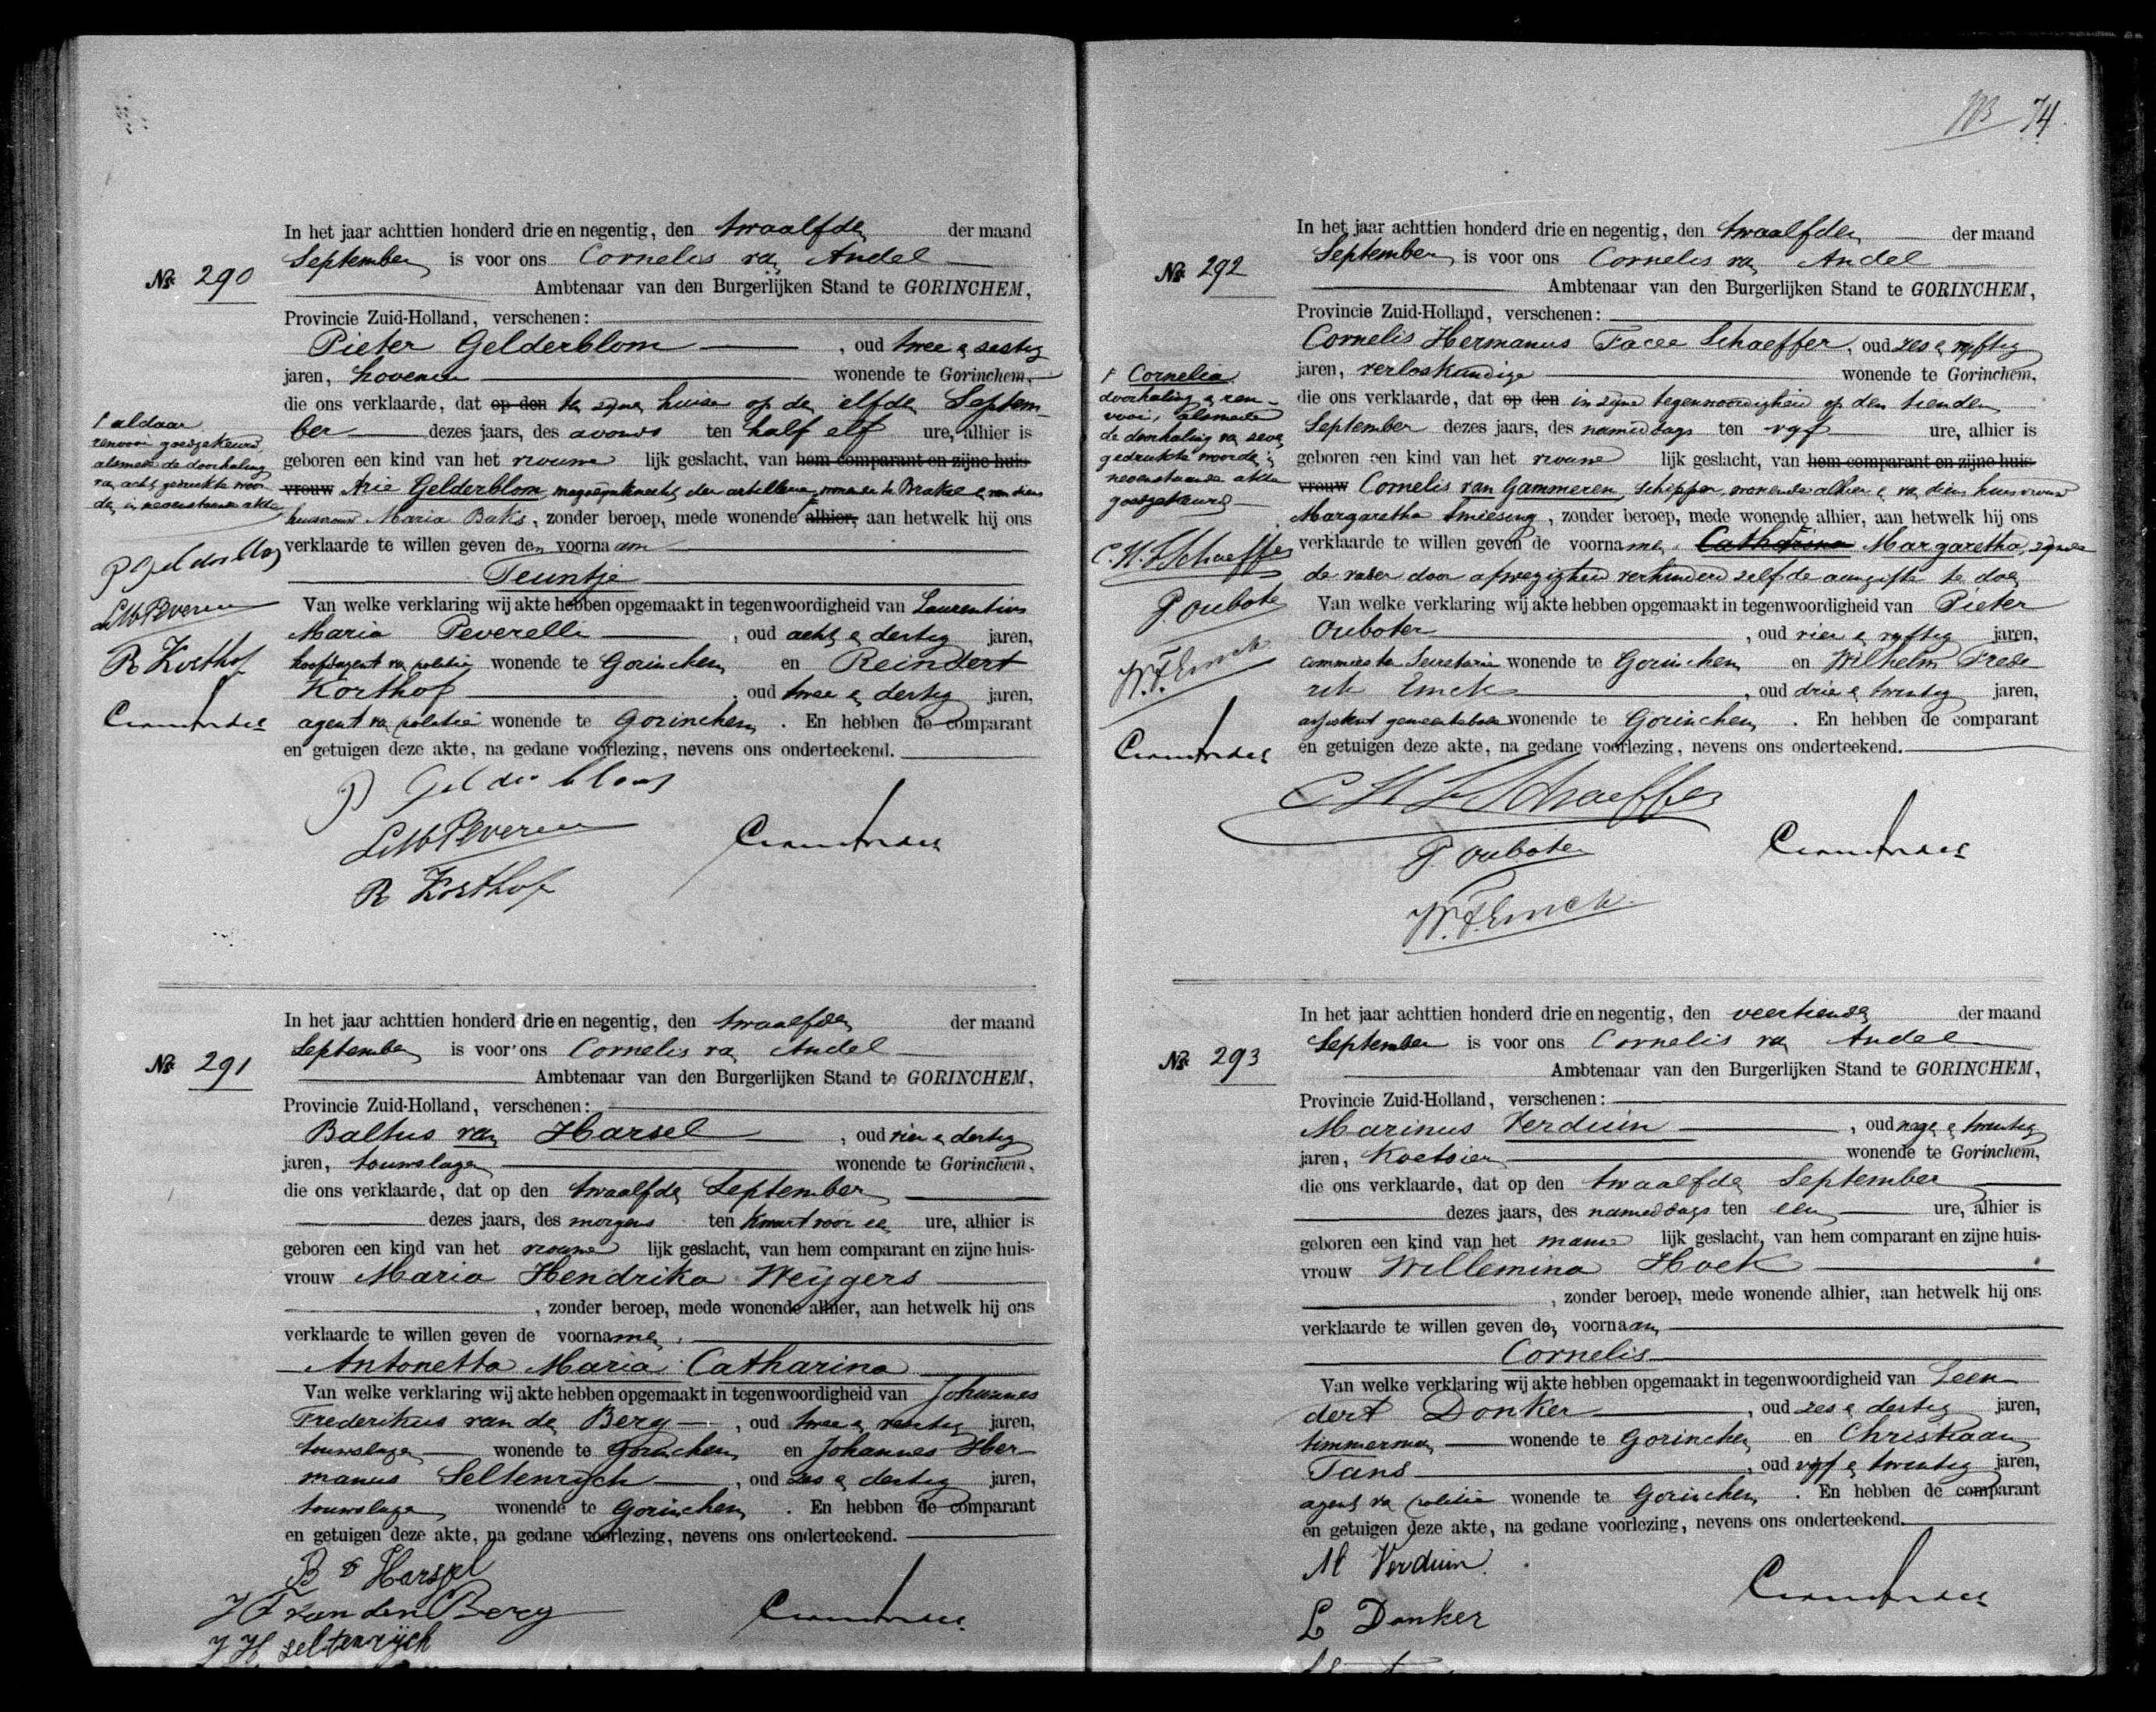 In het jaar achttien honderd drie en negentig, den twaalfden der maand
September is voor ons Cornelis van Andel
Nº 290
Ambtenaar van den Burgerlijken Stand te GORINCHEM,
Provincie Zuid-Holland, verschenen:
Pieter Gelderblom , oud twee en sestig
jaren, hovenier wonende te Gorinchem,
die ons verklaarde, dat op den te zijnen huize op den elfden Septem-
ber dezes jaars, des avonds ten half elf ure, alhier is
geboren een kind van het vrouwe lijk geslacht, van hem comparant en zijne huis-
vrouw Arie Gelderblom, magazijnknecht der artillerie, wonende te Brakel en van diens
huisvrouw Maria Baks, zonder beroep, mede wonende alhier, aan hetwelk hij ons
verklaarde te willen geven den voornaam
Teuntje
Van welke verklaring wij akte hebben opgemaakt in tegenwoordigheid van Laurentius
Maria Peverelli , oud acht en dertig jaren,
hoofdagent van politie wonende te Gorinchem en Reindert
Korthof , oud twee en dertig jaren,
agent van politie wonende te Gorinchem . En hebben de comparant
en getuigen deze akte, na gedane voorlezing, nevens ons onderteekend.
aldaar
renvooi goedgekeurd
alsmede de doorhaling
van acht gedrukte woor-
den in nevenstaande akte
P Gelderblom
L M Peverelli
R Korthof
C van Andel
P Gelderblom
L M Peverelli
C van Andel
R Korthof
In het jaar achttien honderd drie en negentig, den twaalfden der maand
September is voor ons Cornelis van Andel
Nº 291
Ambtenaar van den Burgerlijken Stand te GORINCHEM,
Provincie Zuid-Holland, verschenen:
Baltus van Harsel , oud vier en dertig
jaren, touwslager wonende te Gorinchem,
die ons verklaarde, dat op den twaalfden September
dezes jaars, des morgens ten kwart voor een ure, alhier is
geboren een kind van het vrouwe lijk geslacht, van hem comparant en zijne huis-
vrouw Maria Hendrika Weijgers
, zonder beroep, mede wonende alhier, aan hetwelk hij ons
verklaarde te willen geven de voornamen
Antonetta Maria Catharina
Van welke verklaring wij akte hebben opgemaakt in tegenwoordigheid van Johannes
Frederikus van den Berg , oud twee en veertig jaren,
touwslager wonende te Gorinchem en Johannes Her-
manus Seltenrijch , oud zes en dertig jaren,
touwslager wonende te Gorinchem . En hebben de comparant
en getuigen deze akte, na gedane voorlezing, nevens ons onderteekend.
B v Harssel
J F van den Berg
C van Andel
J H seltenrijch
74
In het jaar achttien honderd drie en negentig, den twaalfden der maand
September is voor ons Cornelis van Andel
Nº 292
Ambtenaar van den Burgerlijken Stand te GORINCHEM,
Provincie Zuid-Holland, verschenen:
Cornelis Hermanus Facee Schaeffer, oud zes en vijftig
jaren, verloskundige wonende te Gorinchem,
die ons verklaarde, dat op den in zijne tegenwoordigheid op den tienden
September dezes jaars, des namiddags ten vijf ure, alhier is
geboren een kind van het vrouwe lijk geslacht, van hem comparant en zijne huis-
vrouw Cornelis van Gammeren, schipper, wonende alhier en van diens huisvrouw
Margaretha Smeesing, zonder beroep, mede wonende alhier, aan hetwelk hij ons
verklaarde te willen geven de voornamen Catharina Margaretha, zijnde
de vader door afwezigheid verhinderd zelf de aangifte te doen
Van welke verklaring wij akte hebben opgemaakt in tegenwoordigheid van Pieter
Ouboter , oud vier en vijftig jaren,
commies ter Secretarie wonende te Gorinchem en Wilhelm Frede-
rik Emck , oud drie en twintig jaren,
assistent gemeentebode wonende te Gorinchem . En hebben de comparant
en getuigen deze akte, na gedane voorlezing, nevens ons onderteekend.
Cornelia
doorhaling en ren-
vooi, alsmede
de doorhaling van zeven
gedrukte woorden in
nevenstaande akte
goedgekeurd
C. H. F Schaeffer
P. Ouboter
W. F. Emck
C van Andel
C H F Schaeffer
P. Ouboter
C van Andel
W. F. Emck
In het jaar achttien honderd drie en negentig, den veertienden der maand
September is voor ons Cornelis van Andel
Nº 293
Ambtenaar van den Burgerlijken Stand te GORINCHEM,
Provincie Zuid-Holland, verschenen:
Marinus Verduin , oud negen en twintig
jaren, Koetsier wonende te Gorinchem,
die ons verklaarde, dat op den twaalfden September
dezes jaars, des namiddags ten een ure, alhier is
geboren een kind van het manne lijk geslacht, van hem comparant en zijne huis-
vrouw Willemina Hoek
, zonder beroep, mede wonende alhier, aan hetwelk hij ons
verklaarde te willen geven den voornaam
Cornelis
Van welke verklaring wij akte hebben opgemaakt in tegenwoordigheid van Leen-
dert Donker , oud zes en dertig jaren,
timmerman wonende te Gorinchem en Christiaan
Tans , oud vijf en twintig jaren,
agent van politie wonende te Gorinchem . En hebben de comparant
en getuigen deze akte, na gedane voorlezing, nevens ons onderteekend.
M Verduin
C van Andel
L Donker